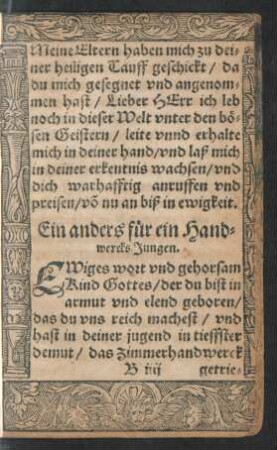 Meine Eltern haben mich zu dei-
ner heiligen Tauff geschickt / da
du mich gesegnet vnd angenom-
men hast / Lieber HErr ich leb
noch in dieser Welt vnter den bö-
sen Geistern / leite vnnd erhalte
mich in deiner hand / vnd laß mich
in deiner erkentnis wachsen / vnd
dich warhafftig anruffen vnd
preisen / võ nu an biß in ewigkeit.
Ein anders für ein Hand-
wercks Jungen.
EWiges wort vnd gehorsam
Kind Gottes / der du bist in
armut vnd elend geboren /
das du vns reich machest / vnd
hast in deiner jugend in tieffster
demut / das Zimmerhandwerck
B iiij getrie-